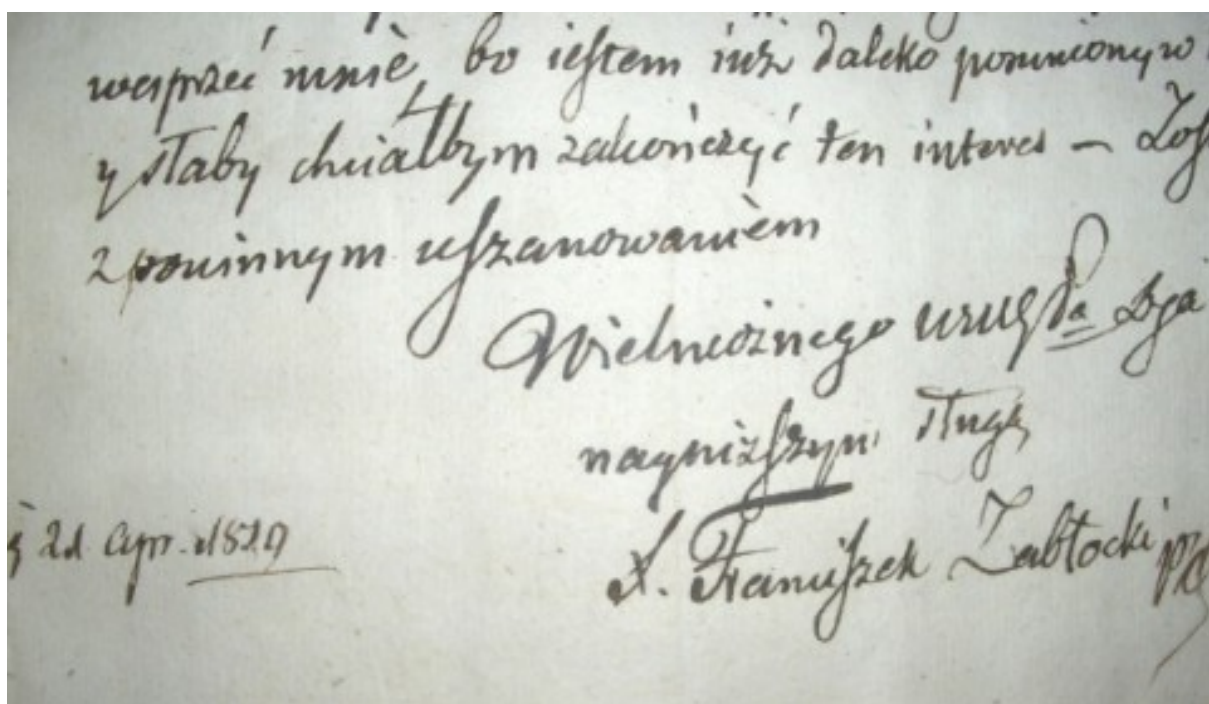 wesprzeć mnie, bo iestem iuż daleko posunionyw
y słaby chciałbym zakończyć ten interes – Zos
z powinnym uszanowaniem
Wielmożnego
nayniższym sługą
X. Franciszek Zabłocki
21 Apr. 1820